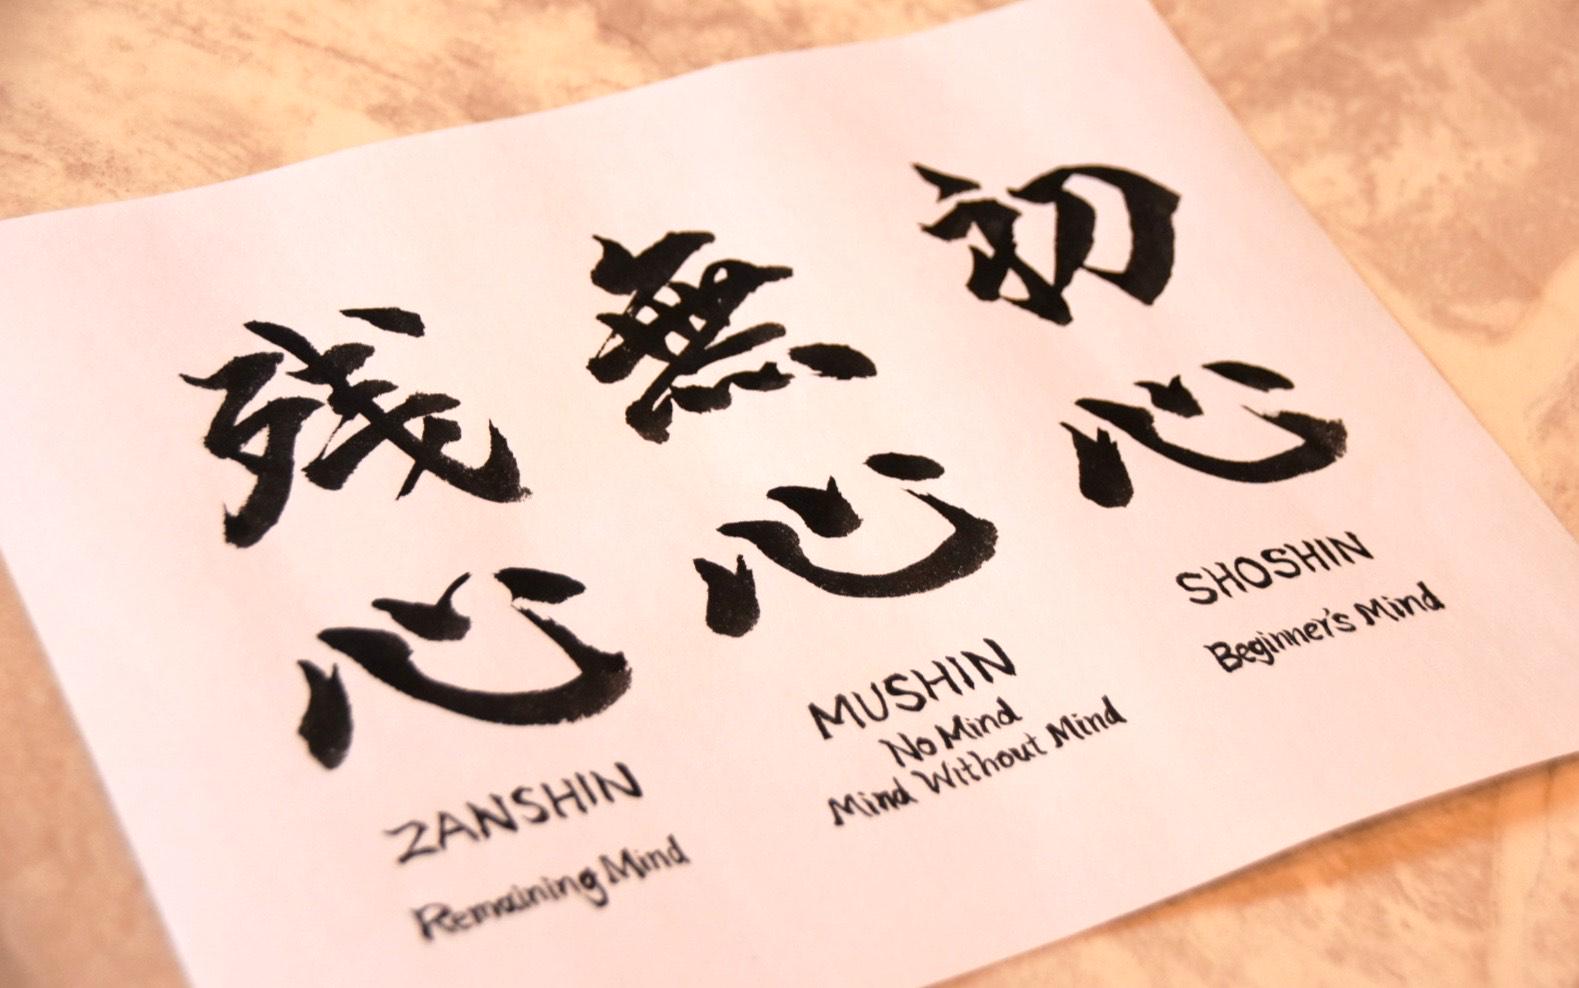 残心
ZANSHIN
Remaining Mind
無心
MUSHIN
No Mind
Mind Without Mind
初心
SHOSHIN
Beginner's Mind